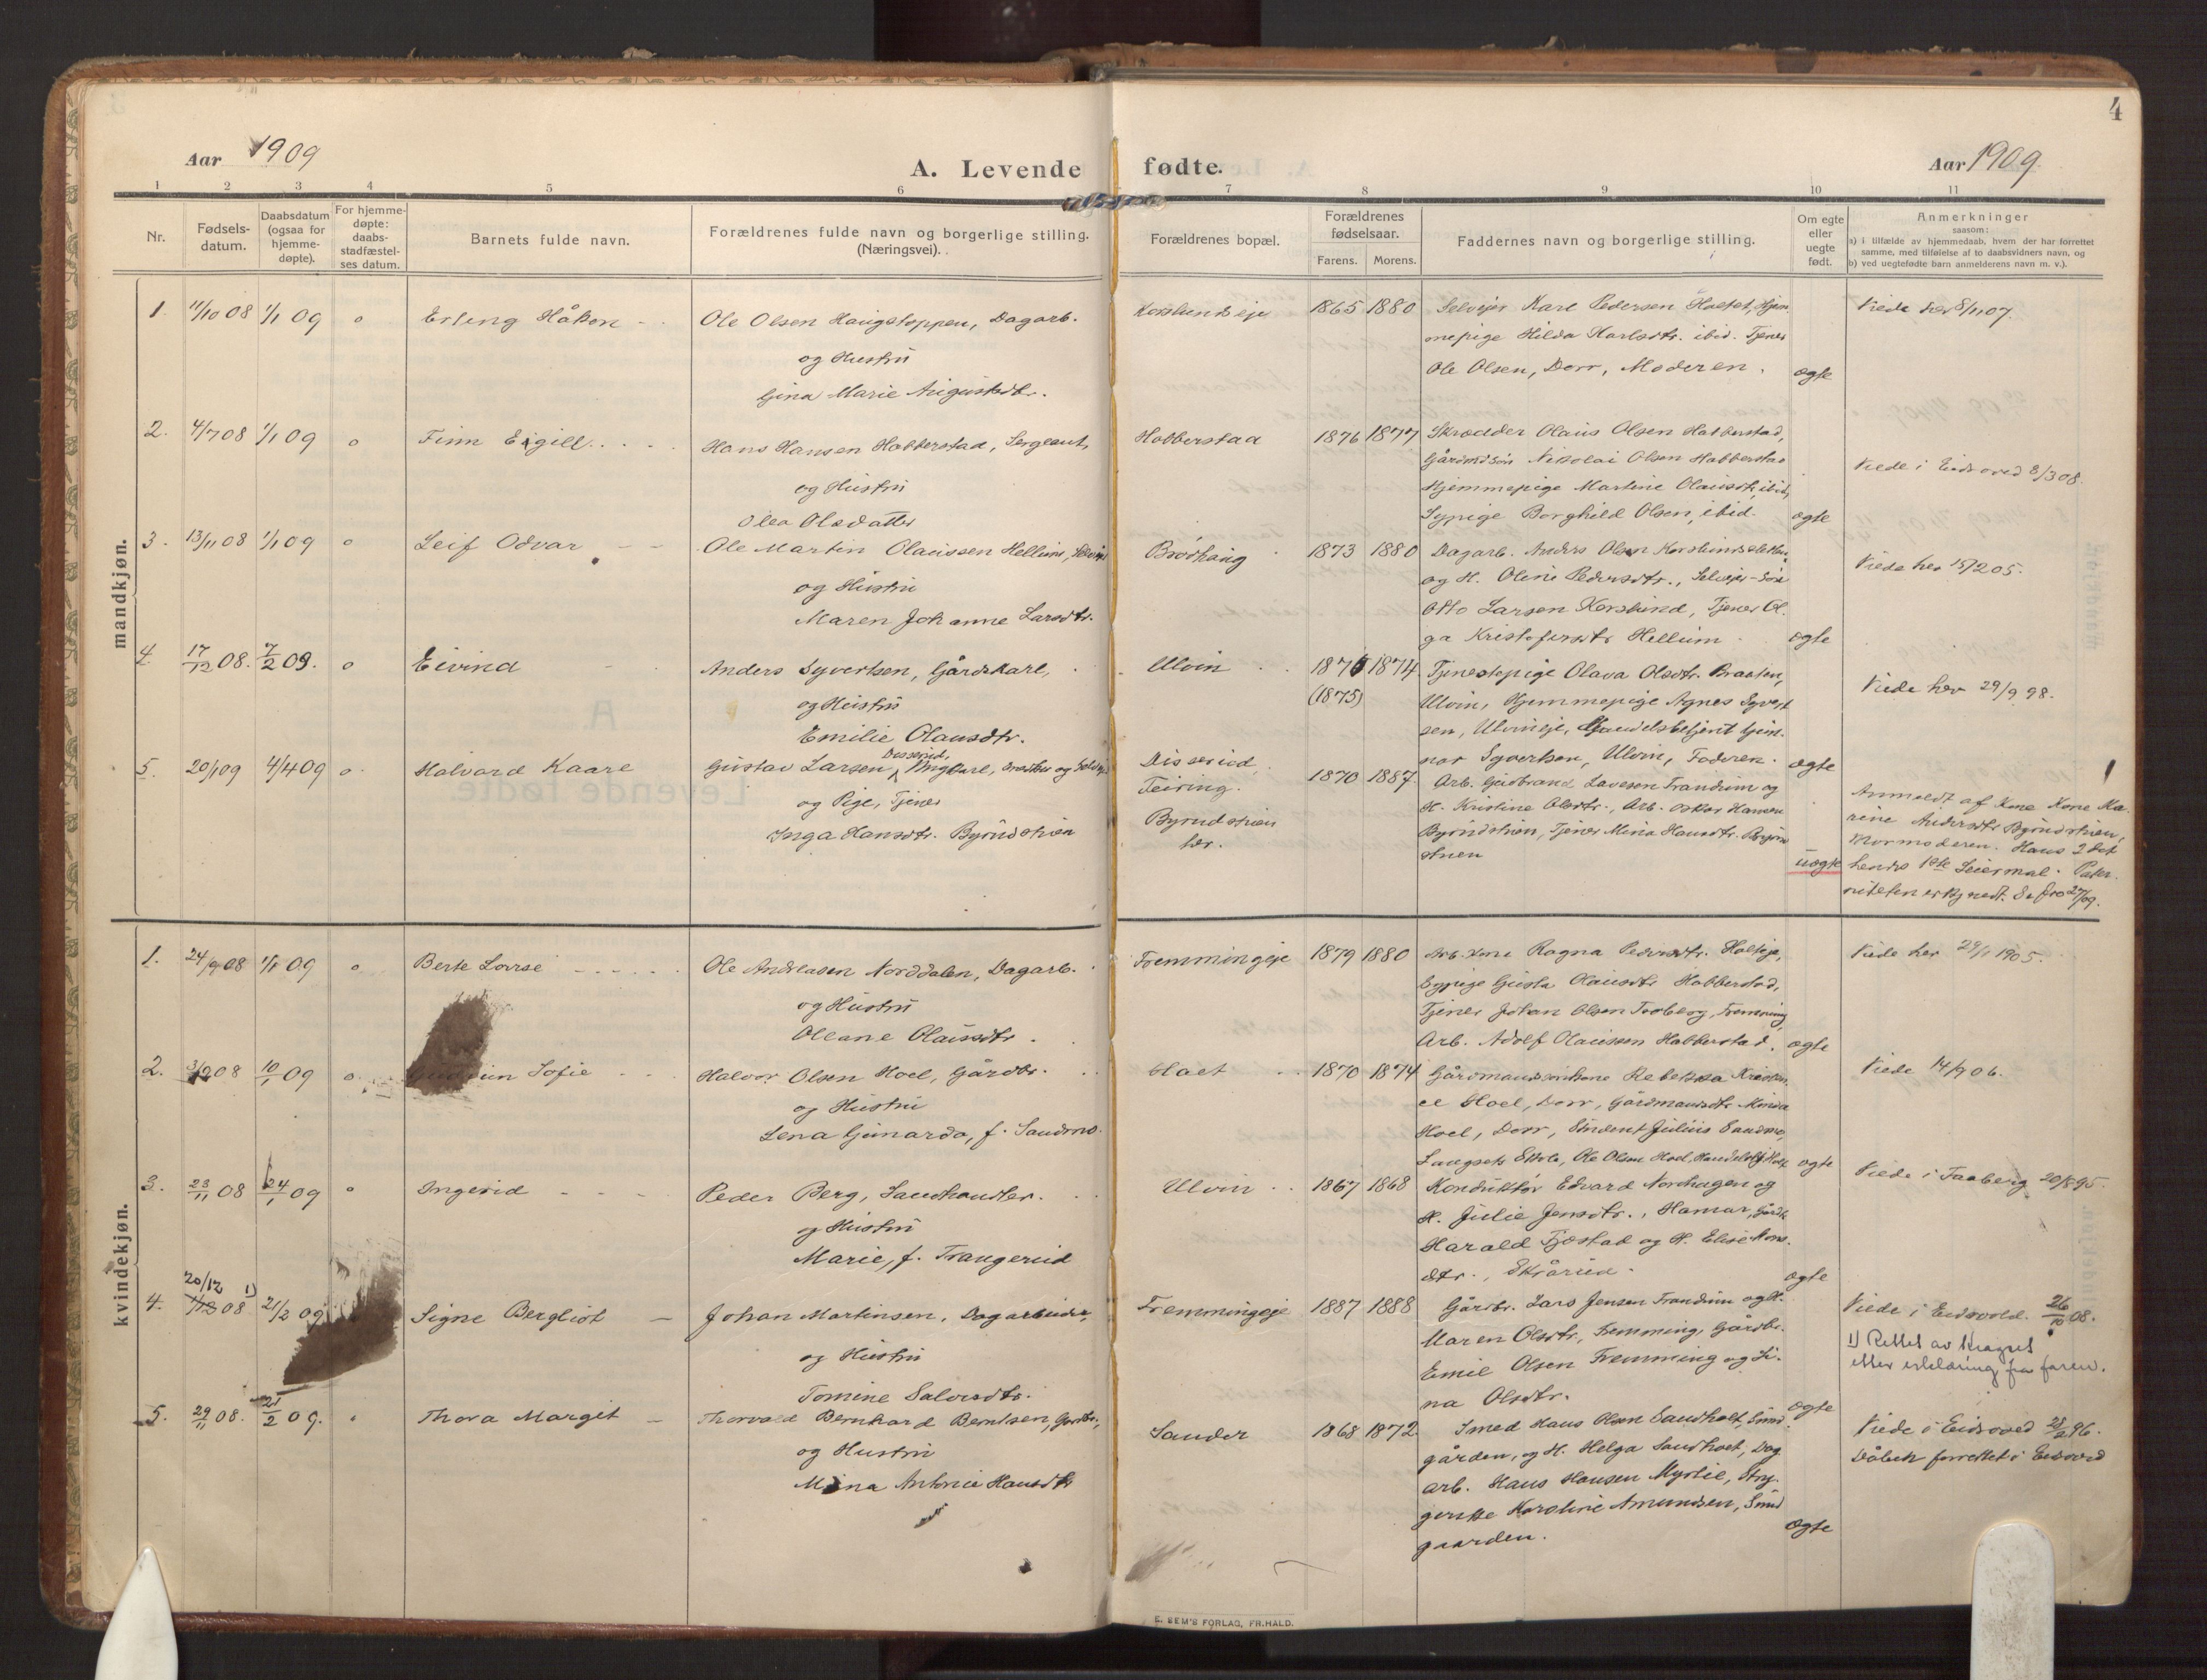 4
Aar 1909
A. Levende fødte.
Aar 1909
1 2 3 4 5 6 7 8 9 10 11
Nr.
Fødsels-
datum.
Daabsdatum
(ogsaa for
hjemme-
døpte).
For hjemme-
døpte:
daabs-
stadfæstel-
ses datum.
Barnets fulde navn.
Forældrenes fulde navn og borgerlige stilling.
(Næringsvei).
Forældrenes bopæl.
Forældrenes
fødselsaar.
Farens. Morens.
Faddernes navn og borgerlige stilling.
Om egte
eller
uegte
født.
Anmerkninger
saasom:
a) i tilfælde av hjemmedaab, hvem der har forrettet
samme, med tilføielse af to daabsvidners navn, og
b) ved uegtefødte barn anmelderens navn m. v.).
mandkjøn.
1. 11/10 08 1/1 09 0 Erling Håkon
Ole Olsen Haugstoppen, Dagarb.
og Hustru
Gina Marie Augustsdtr.
1865 1880
Selveier Karl Pedersen Holtet, Hjem
mepige Hilda Karlsdtr. ibid. Tjener
Ole Olsen, Dorr, Moderen.
ægte
Viede her 8/11 07.
2. 4/7 08 1/1 09 0 Finn Eigill
Hans Hansen Habberstad, Sergeant,
og Hustru
Olea Olsdatter
Habberstad
1876 1877
Skrædder Olaus Olsen Habberstad,
Gårdmdsøn Nikolai Olsen Habberstad
Hjemmepige Martine Olausdtr, ibid,
Sypige Borghild Olsen, ibid.
ægte
Viede i Eidsvold 8/3 08.
3. 13/11 08 1/1 09 0 Leif Odvar
Ole Martin Olaussen Hellum,
og Hustru
Maren Johanne Larsdtr.
Brødhaug
1873 1880
Dagarb. Anders Olsen
og H. Oline Pedersdtr., Selveier-Søn
Otto Larsen Korslund, Tjener Ol-
ga Kristofersdtr Hellum.
ægte
Viede her 15/2 05.
4. 17/12 08. 7/2 09. 0 Eivind
Anders Syvertsen, Gårdskarl,
og Hustru
Emilie Olausdtr.
Ulvin
1876 1874
(1875)
Tjenestepige Olava Olsdtr. Braaten,
Ulvin, Hjemmepige Agnes Syvert
sen, Ulvineje, Handelsbetjent Gun-
nar Syvertsen, Ulvin, Faderen.
ægte
Viede her 29/9 98.
5. 20/1 09 4/4 09 0 Halvard Kaare
Disserud,
Gustav Larsen, Ungkarl,
og Pige, Tjener
Inga Hansdtr. Byrudstuen
Disserud,
Feiring.
Byrudstuen
her.
1870 1887.
Arb. Gudbrand Larsen Trandum og
H. Kristine Olsdtr., Arb. Oskar Hansen
Byrudstuen, Tjener Mina Hansdtr. Byrud
stuen
uægte
Anmeldt af Kone Kone Ma-
rine Andersdtr Byrudstuen,
Mormoderen. Hans 2det
hendes 1ste Leiermal. Pater-
niteten erkjendt.
kvindekjøn.
1. 24/9 08 1/1 09 0 Berte Lovise
Ole Andreasen Norddalen, Dagarb.
og Hustru
Oleane Olausdtr.
Fremmingeje
1879 1880
Arb. Kone Ragna Pedersdtr. Holteje,
Sypige Gusta Olausdtr Habberstad,
Tjener Johan Olsen Torberg, Fremming,
Arb. Adolf Olaussen Habberstad.
ægte
Viede her 29/1 1905.
2. 3/12 08 10/1 09 0 Sofie
Halvor Olsen Hoel, Gårdbr.
og Hustru
Lena Gunarda, f. Sandmo.
Hoel
1870 1874
Gårdmandsenkone Rebekka Kristian
ee Hoel, Dorr, Gårdmandsdtr Minda
Hoel, Dorr, Student Julius Sandmo,
Langset Skole, Ole Olsen Hoel,
ægte
Viede 14/9 06.
3. 23/11 08 24/1 09 0 Ingerid
Peder Berg, Landhandler.
og Hustru
Marie, f. Trangerud
Ulvin
1867 1868
Konduktør Edvard Nordhagen og
H. Julie Jensdtr., Hamar, Gårdb
Harald Fjøstad og H. Elise Hans-
dtr., Skårud.
ægte
Viede i Faaberg 20/8 95.
20/12
4. 1/12 08 1) 21/2 09 Signe Bergliot
Johan Martinsen, Dagarbeider,
og Hustru
Tomine Salvesdtr.
Fremmingeje
1887 1888
Gårdbr. Lars Jensen Trandum og H.
Maren Olsdtr, Fremming, Gårdbr.
Emil Olsen Fremming og Li-
na Olsdtr.
ægte
Viede i Eidsvold. 26/10 08.
1) Rettet av
etter erklæring fra faren.
5. 29/11 08. 21/2 09. Thora Margit
Thorvald Bernhard Berntsen, Gårdbr.,
og Hustru
Mina Antonie Hansdtr
Sander
1868 1872.
Smed Hans Olsen Sandholt, Sund
gården, og H. Helga Sandholt, Dag
arb. Hans Hansen Myrlie, Stry-
gerske Karoline Amundsen, Sund
gaarden.
ægte
Viede i Eidsvold 28/2 96.
Dåben forrettet i Eidsvold
E. SEM'S FORLAG, FR.HALD.